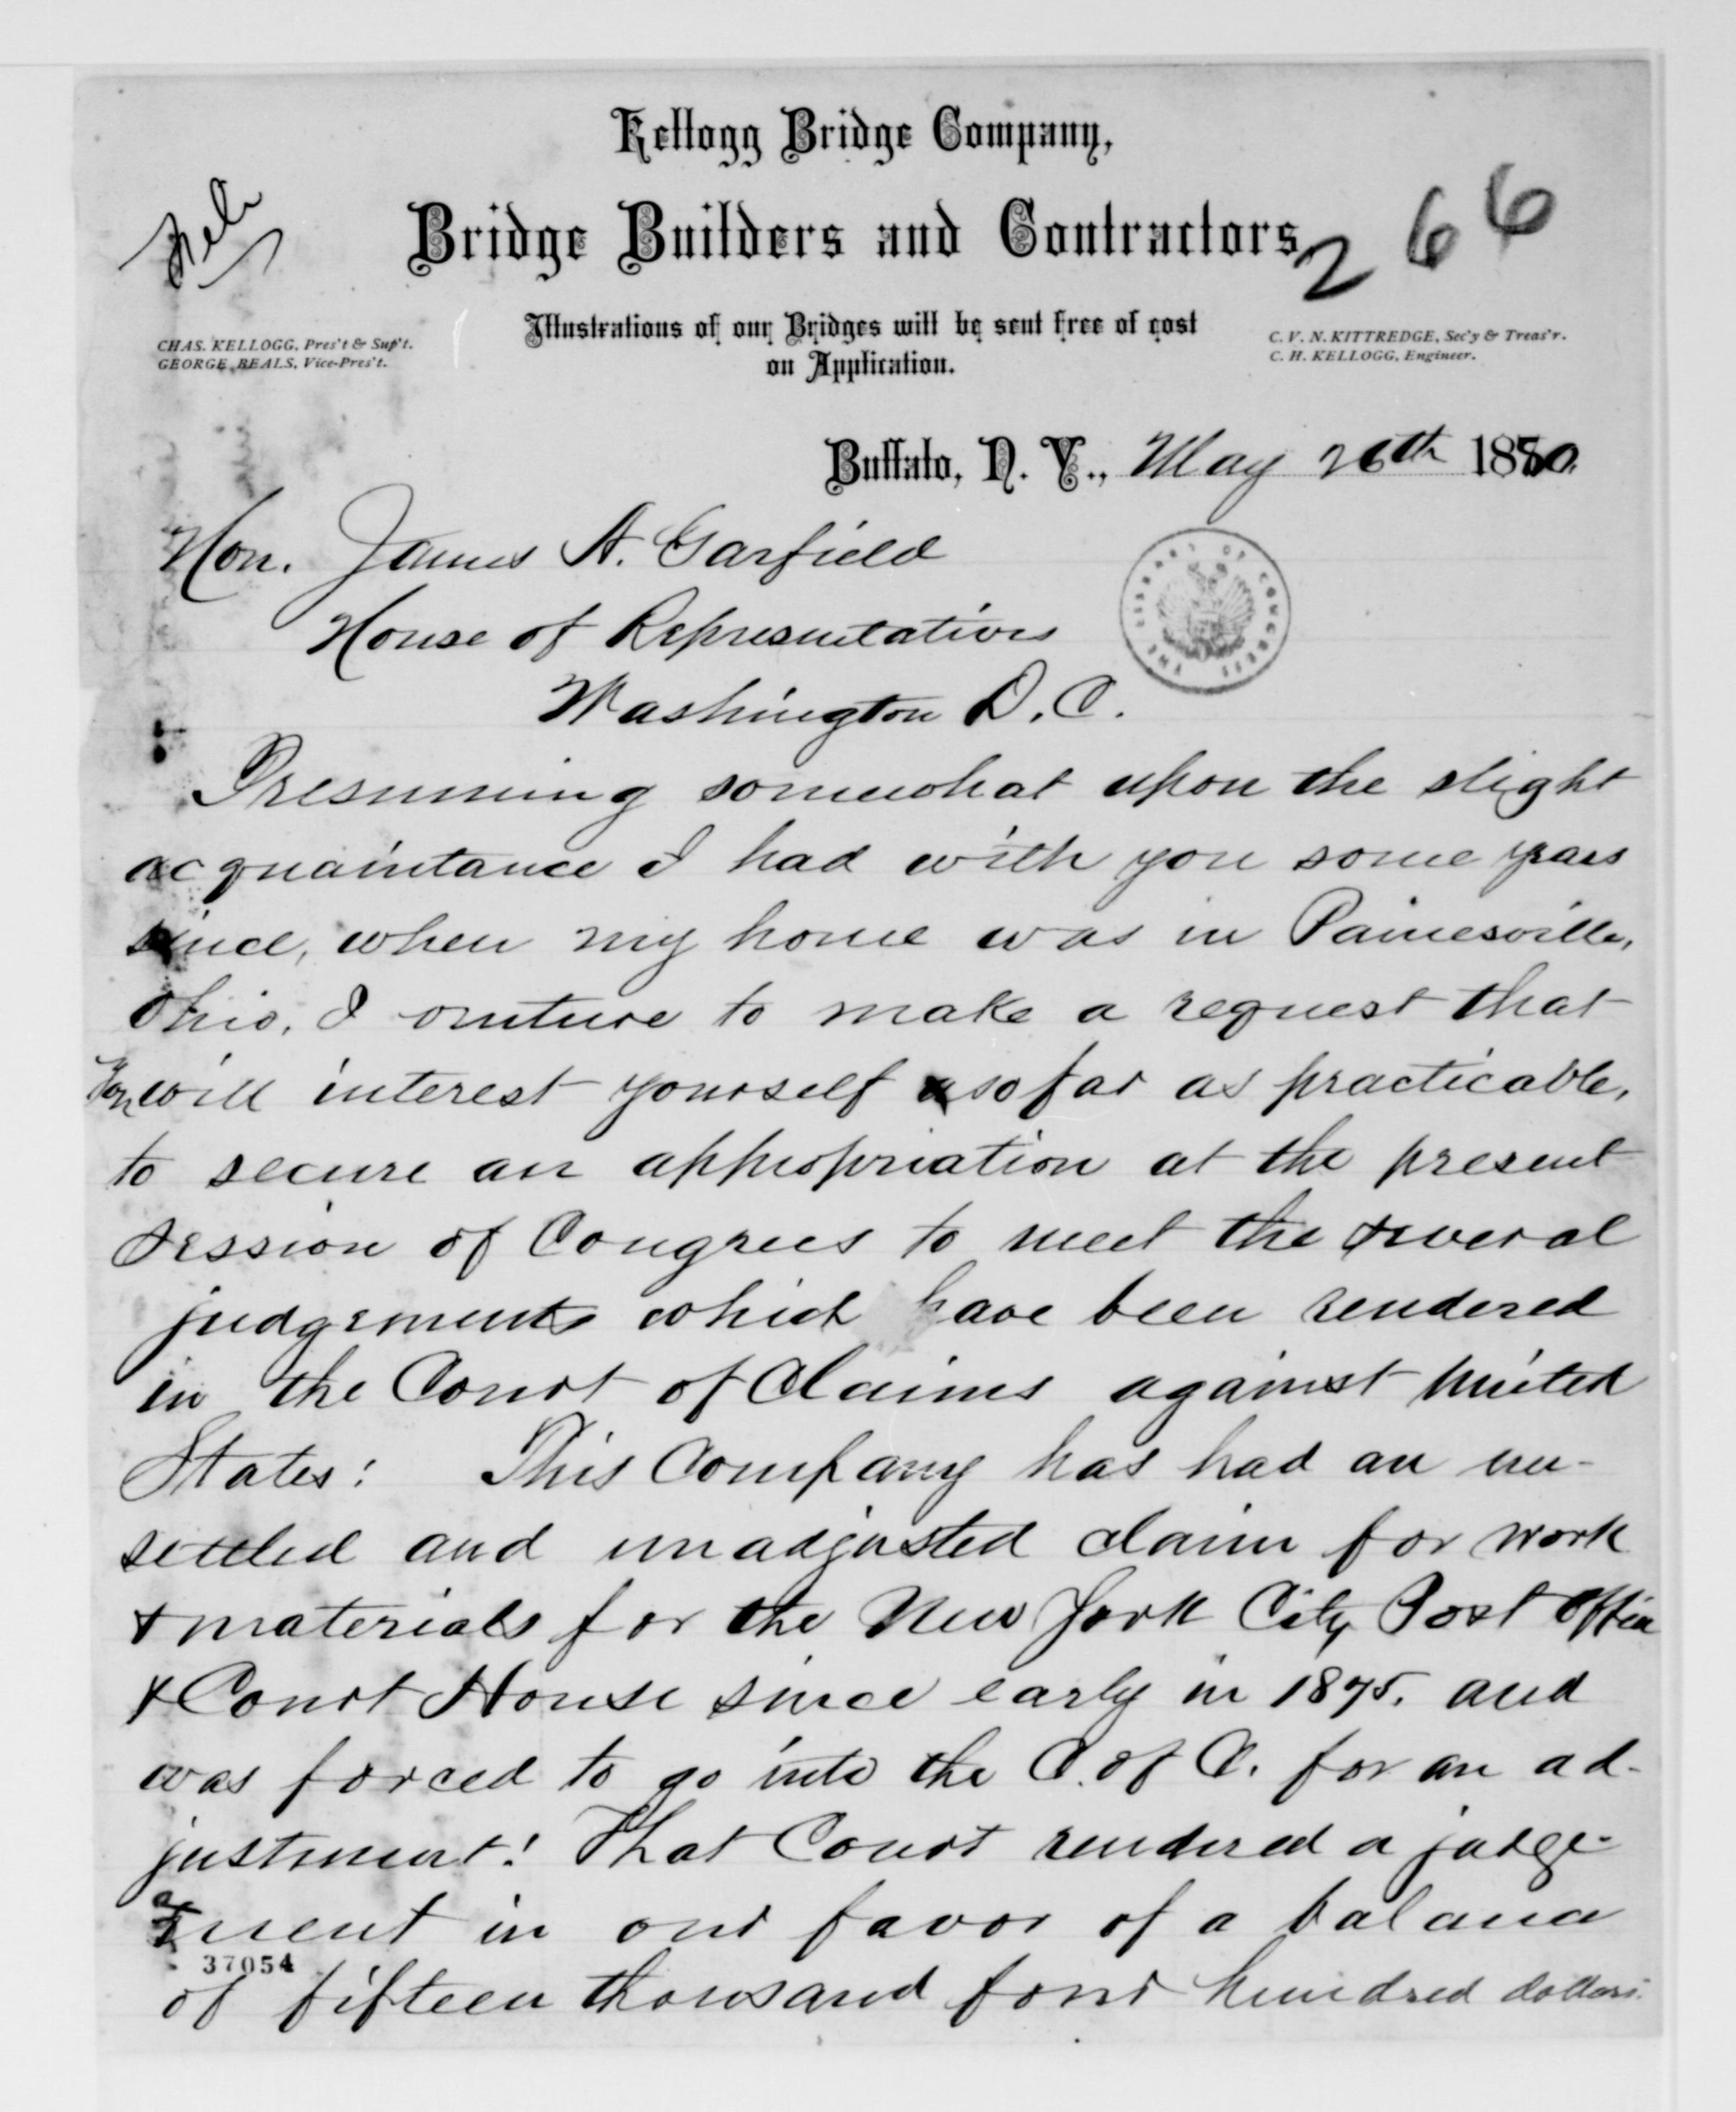 Kellogg Bridge Company,
Bridge Builders and Contractors,
266
Illustrations of our Bridges will be sent free of cost
on Application.
CHAS. KELLOGG, Pres't & Sup't.
GEORGE BEALS, Vice-Pres't.
C. V. N. KITTREDGE, Sec'y & Treas'r.
C. H. KELLOGG, Engineer.
Buffalo, N. Y., May 26th 1880.
Hon. James A. Garfield
House of Representatives
Washington D. C.
THE LIBRARY OF CONGRESS
Presuming somewhat upon the slight
acquaintance I had with you some years
since, when my home was in Painesville,
Ohio, I venture to make a request that
you will interest yourself so far as practicable,
to secure an appropriation at the present
session of Congress to meet the several
judgements which have been rendered
in the Court of Claims against United
States: This Company has had an un-
settled and unadjusted claim for work
& materials for the New York City Post Office
& Court House since early in 1875. and
was forced to go into the C. of C. for an ad-
justment! That Court rendered a judge-
ment in our favor of a balance
37054
of fifteen thousand four hundred dollars.